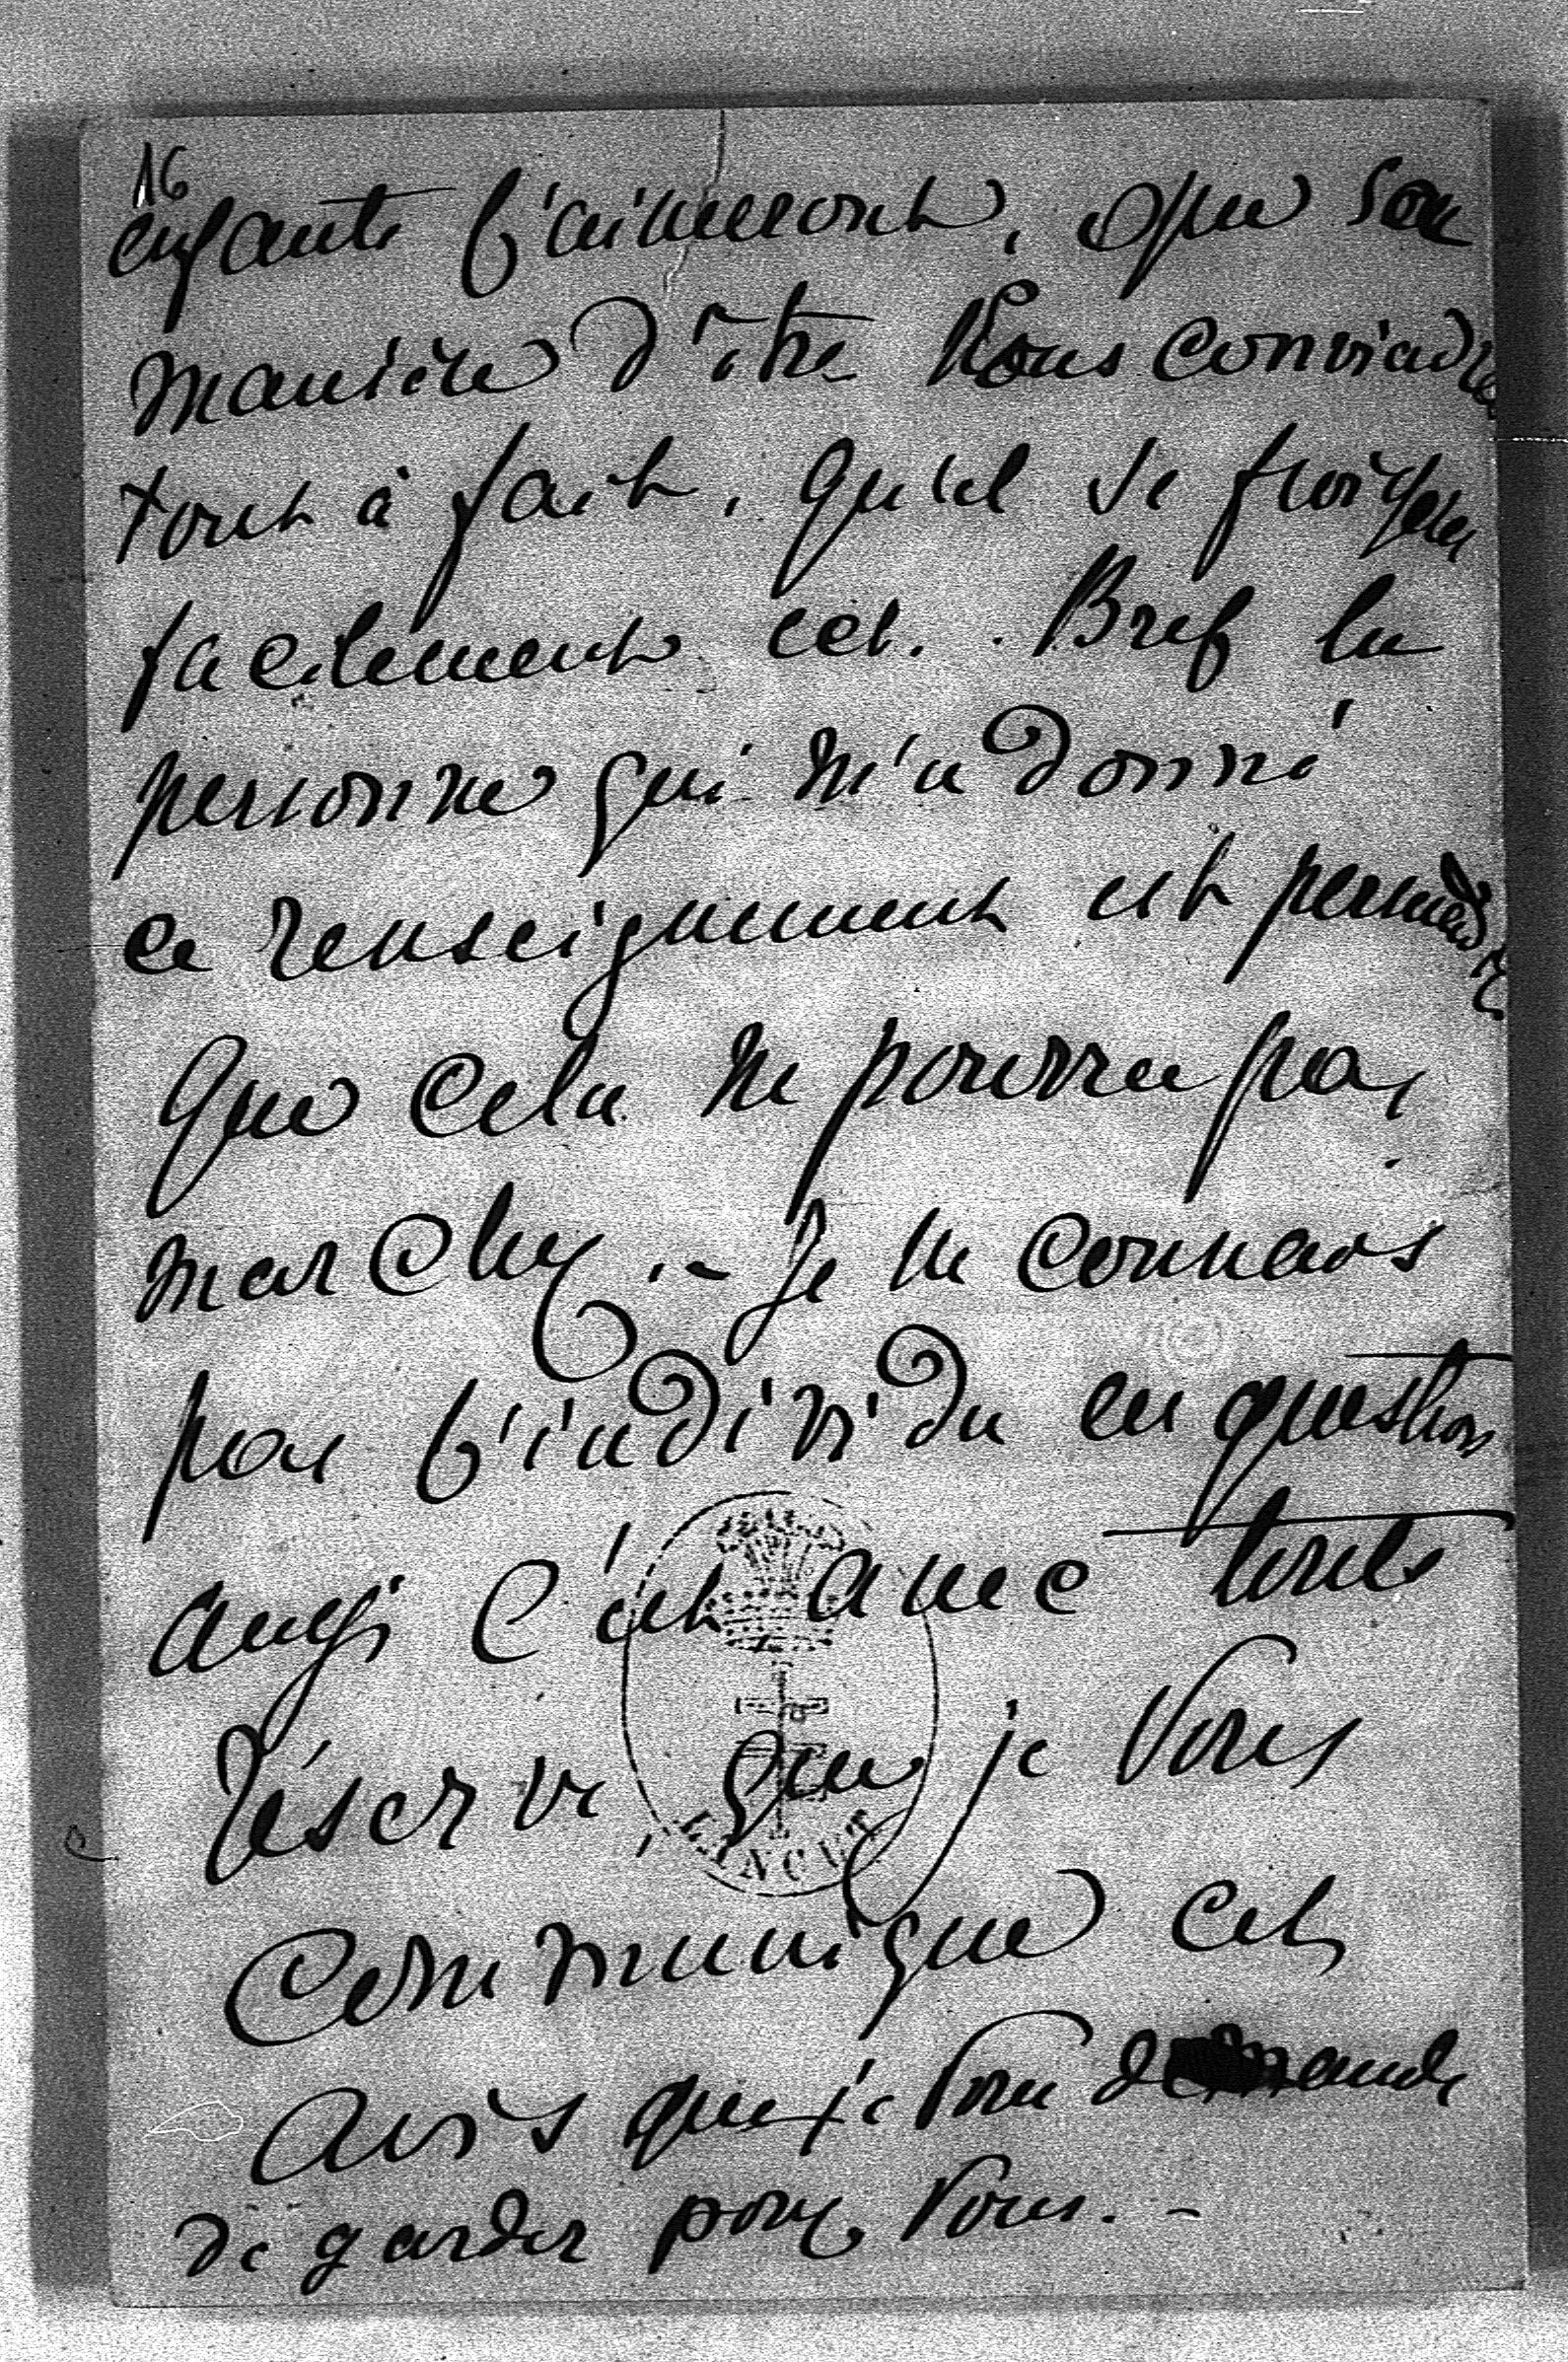 16
enfants l'aimeront, que son
manière d'être vous conviendra
tout à fait, qu'il se froissera
facilement cet. . Bref la
personne qui m'a donné
ce renseignement est persuadée
que cela ne pourra pas
marcher. – Je ne connais
pas l'individu en question
aussi c'est avec toute
réserve que je vous
communique cet
avis que je vous demande
de garder pour vous. –